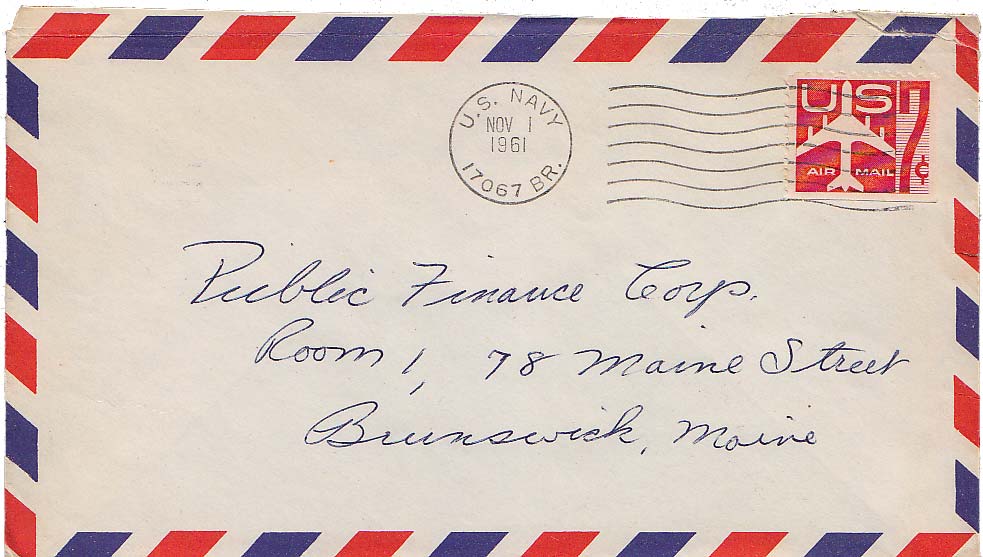 U.S. NAVY
NOV 1
1961
17067 BR.
US 7¢
AIR MAIL
Public Finance Corp.
Room 1, 78 Maine Street
Brunswick, Maine